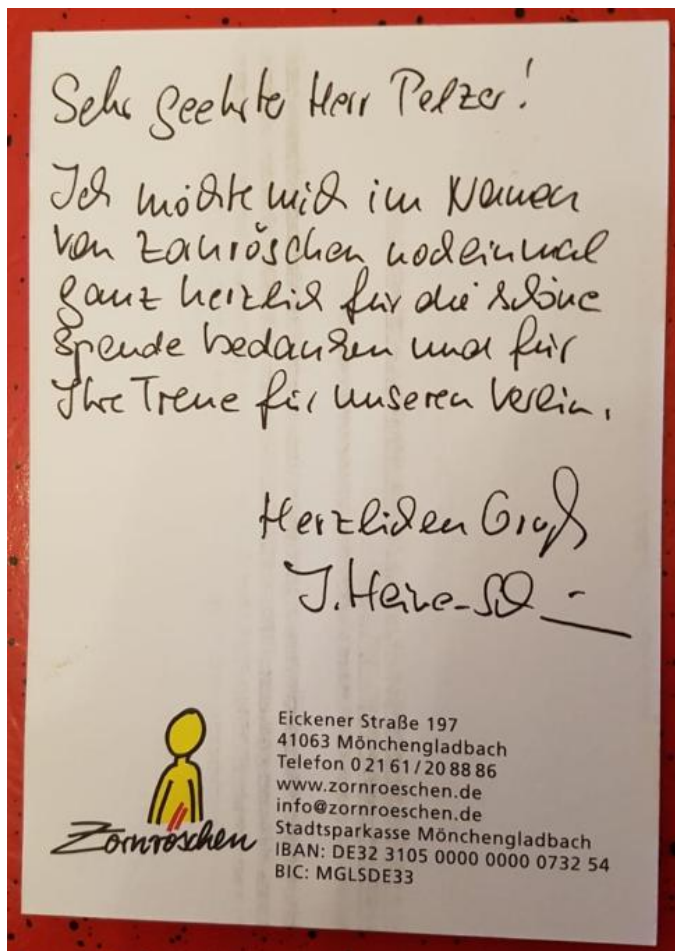 Sehr geehrter Herr Pelzer!
Ich möchte mich im Namen
von Zornröschen nocheinmal
ganz herzlich für die schöne
Spende bedanken und für
Ihre Treue für unseren Verein.
Herzlichen Gruß
I. Heine-
Zornröschen
Eickener Straße 197
41063 Mönchengladbach
Telefon 0 21 61 / 20 88 86
www.zornroeschen.de
info@zornroeschen.de
Stadtsparkasse Mönchengladbach
IBAN: DE32 3105 0000 0000 0732 54
BIC: MGLSDE33